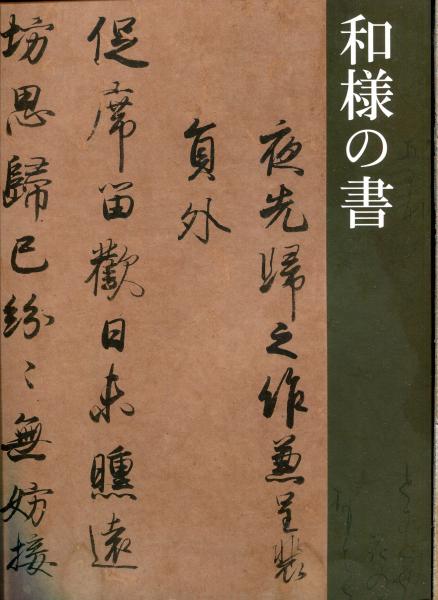 和様の書
夜先歸之作兼呈裴
員外
促席留歡日未曛遠
坊思歸已紛〻無妨接